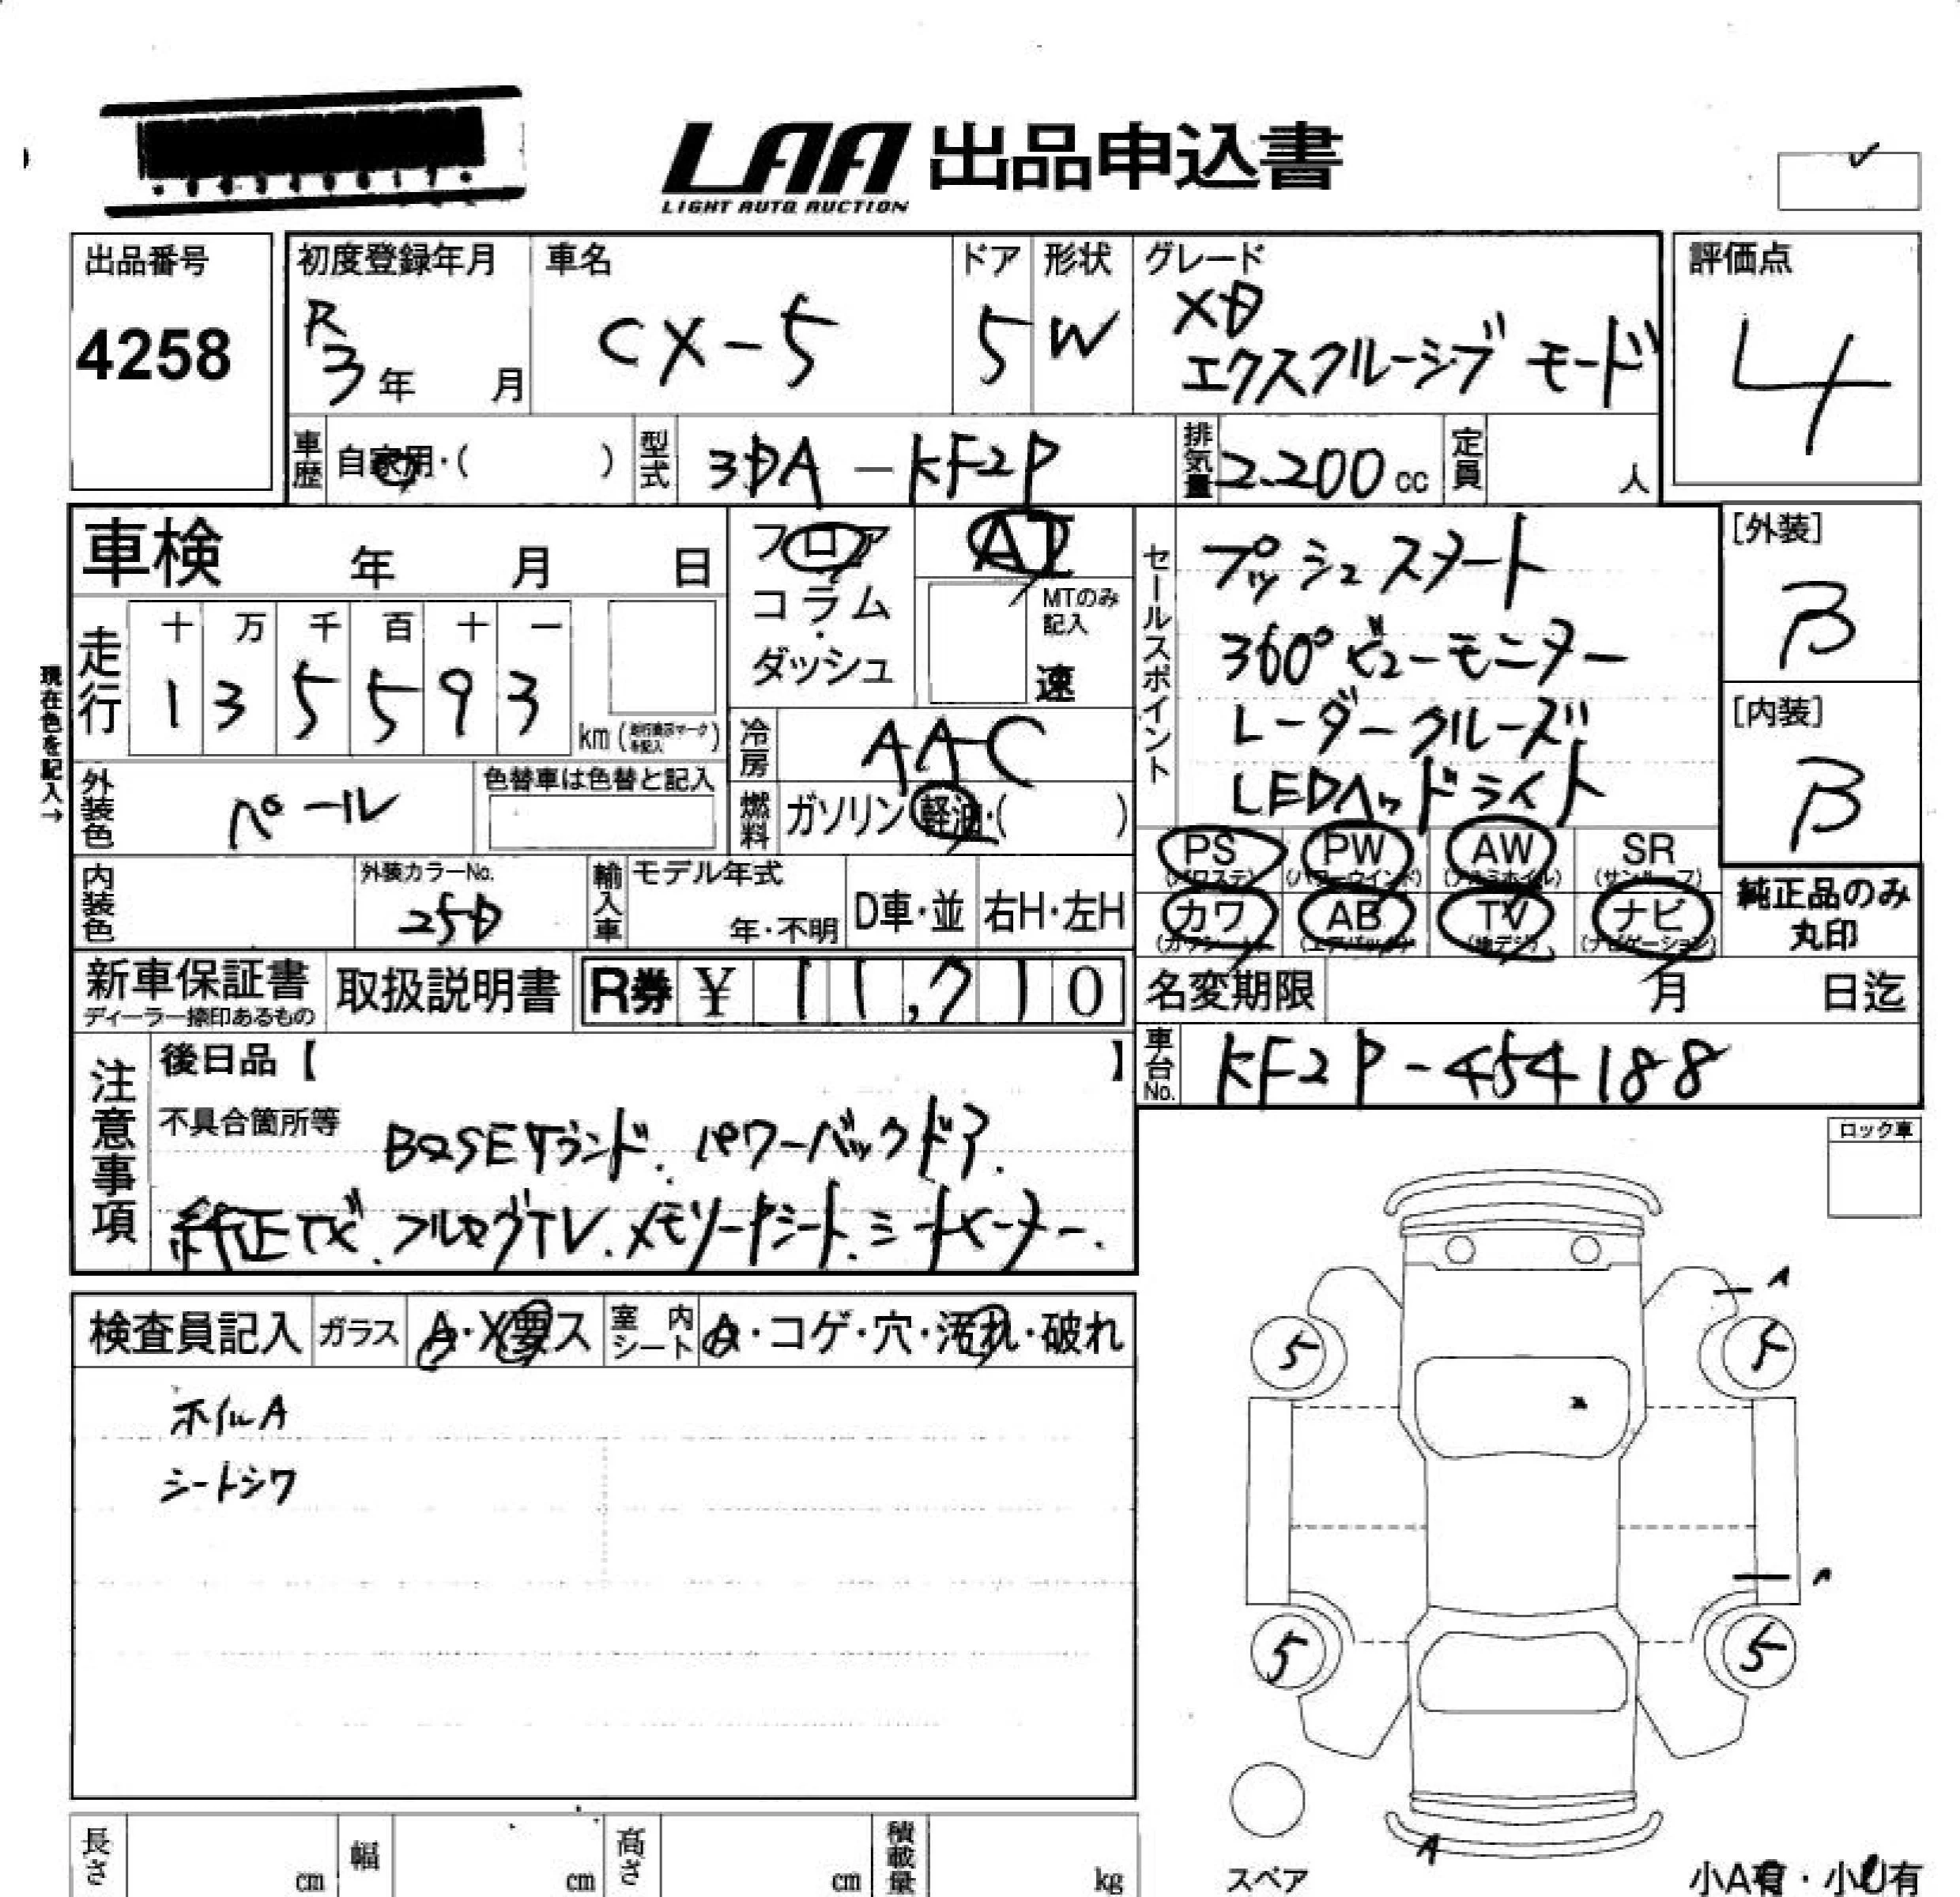 LAA 出品申込書
LIGHT AUTO AUCTION
出品番号
4258
初度登録年月
R
3年 月
車名
CX-5
ドア
5
形状
W
グレード
XD
エクスクルーシブ モード
評価点
4
車歴 自家用・( )
型式 3DA-KF2P
排気量 2.200 cc
定員 人
車検 年 月 日
フロア
コラム
・
ダッシュ
AT
MTのみ
記入
速
走行
十 万 千 百 十 一
1 3 5 5 9 3
km
現在色を記入→
外装色 パール
色替車は色替と記入
冷房 AAC
燃料 ガソリン・軽油・( )
セールスポイント
プッシュスタート
360°ビューモニター
レーダークルーズ
LEDヘッドライト
[外装]
B
[内装]
B
PS
(パワステ)
PW
(パワーウインド)
AW
(アルミホイル)
SR
(サンルーフ)
カワ
(カワシート)
AB
(エアバッグ)
TV
(地デジ)
ナビ
(ナビゲーション)
純正品のみ
丸印
内装色
外装カラーNo.
25D
輸入車
モデル年式
年・不明
D車・並
右H・左H
新車保証書
ディーラー捺印あるもの
取扱説明書
R券 ¥ 11,710
名変期限 月 日迄
車台No. KF2P-454188
注意事項
後日品【 】
不具合箇所等
BOSEサウンド. パワーバックドア.
純正ナビ. フルセグTV. メモリー付シート. シートヒーター.
ロック車
検査員記入
ガラス A・X要ス
室内シート A・コゲ・穴・汚れ・破れ
ホイルA
シートシワ
A
5
5
A
5
5
A
スペア
小A有・小U有
長さ cm
幅 cm
高さ cm
積載量 kg